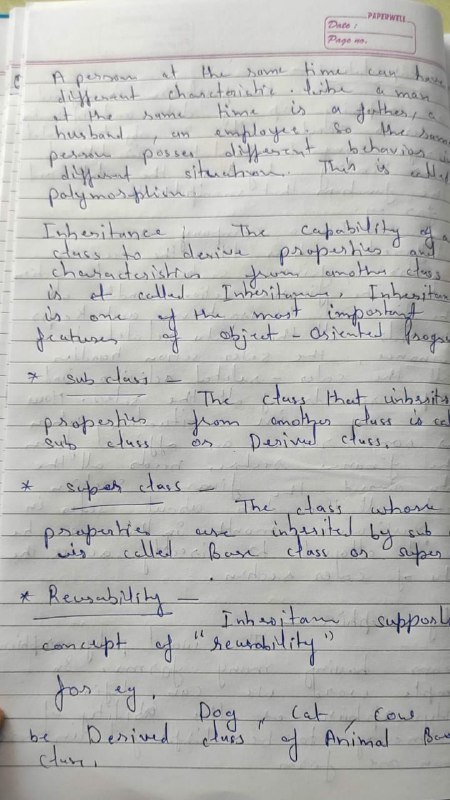 PAPERWELL
Date :
Page no.
A person at the same time can have
different charcteristic. Like a man
at the same time is a father, a
husband, an employee. So the same
person posses different behavior in
different situation. This is called
polymorphism.
Inheritance : The capability of a
class to derive properties and
characteristics from another class
is called Inheritance. Inheritan
is one of the most important
features of object - Oriented Progr
* sub class -
The class that inherits
properties from another class is cal
sub class or Derived class.
* super class -
The class whose
properties are inherited by sub
is called Base class or super
* Reusability -
Inheritan support
concept of "reusability"
for eg.
Dog, Cat, Cow
be Derived class of Animal Bas
class.